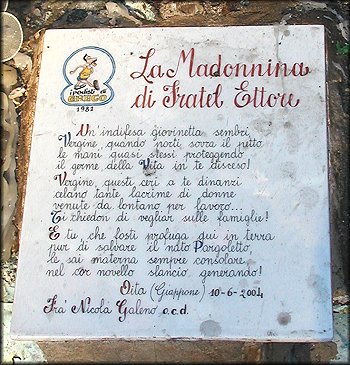 i podisti di
GRECO
1981
La Madonnina
di Fratel Ettore
Un'indifesa giovinetta sembri,
Vergine, quando porti sovra il petto
le mani quasi stessi proteggendo
il germe della Vita in te disceso!
Vergine, questi ceri a te dinanzi
celano tante lacrime di donne
venute da lontano per lavoro...
Ti chiedon di vegliar sulle famiglie!
E tu, che fosti profuga qui in terra
pur di salvare il nato Pargoletto,
le sai materna sempre consolare
nel cor novello slancio generando!
Oita (Giappone) 10-6-2004
Fra' Nicola Galeno o.c.d.